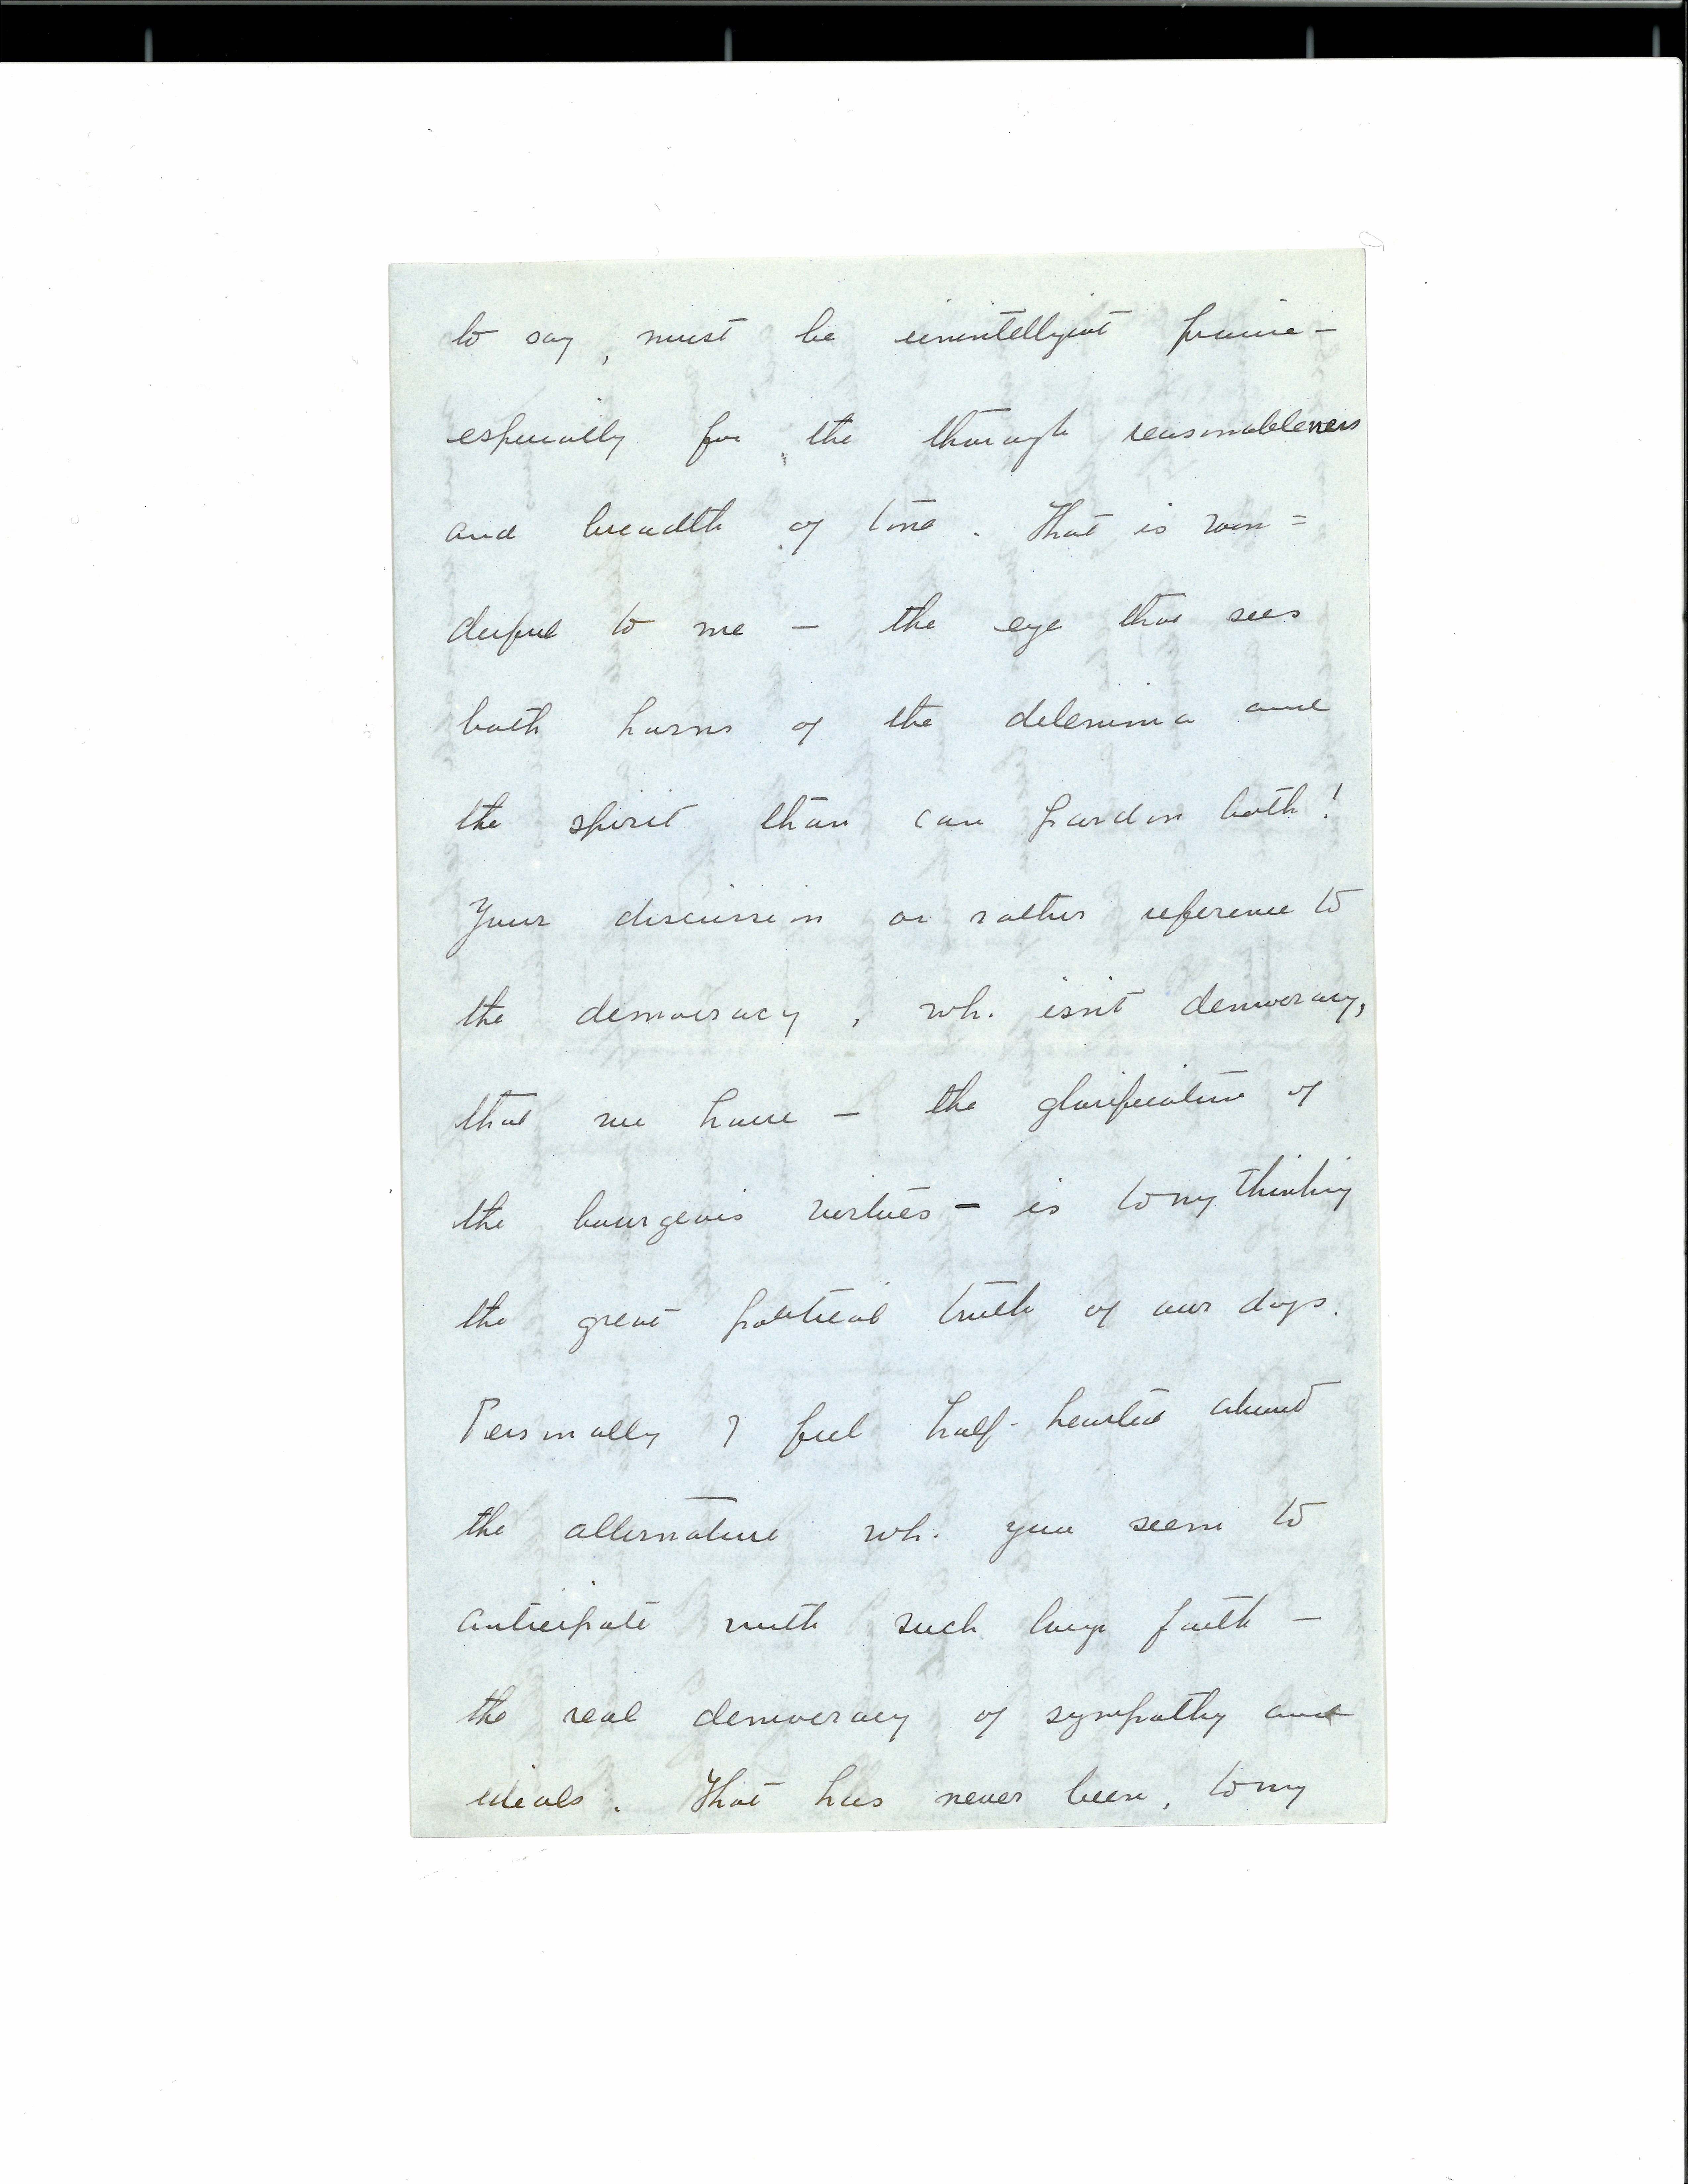 to say, must be unintelligent praise –
especially for the thorough reasonableness
and breadth of tone. That is won=
derful to me – the eye that sees
both horns of the dilemma and
the spirit that can pardon both!
Your discussion or rather reference to
the democracy, wh. isn't democracy,
that we have – the glorification of
the bourgeois virtues – is to my thinking
the great political truth of our days.
Personally I feel half-hearted about
the alternative wh. you seem to
anticipate with such large faith –
the real democracy of sympathy and
ideals. That has never been, to my